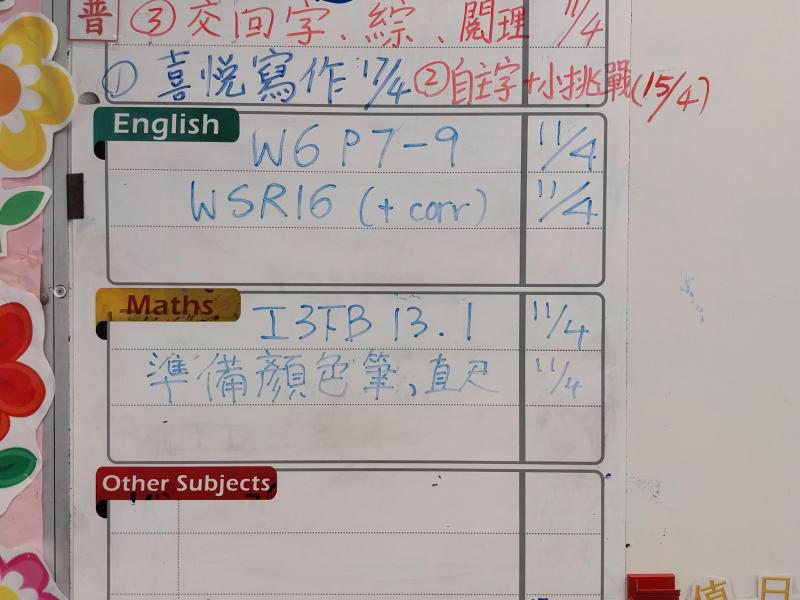 普 ③ 交回字、綜、閱理 11/4
① 喜悅寫作 17/4 ② 自主字+小挑戰(15/4)
English
W6 P7-9 11/4
WSR16 (+ corr) 11/4
Maths
I3FB 13.1 11/4
準備顏色筆,直尺 11/4
Other Subjects
值日